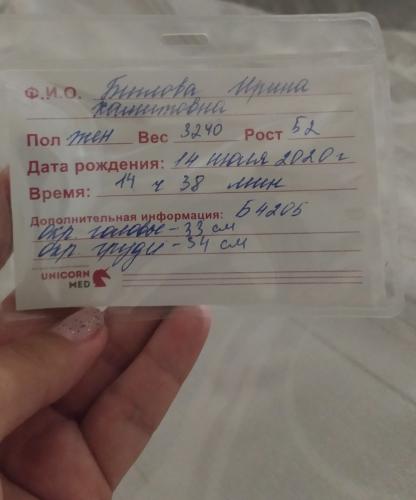 Ф.И.О. Былова Ирина
Хамитовна
Пол жен Вес 3240 Рост 52
Дата рождения: 14 июля 2020 г
Время: 14 ч 38 мин
Дополнительная информация: Б4205
окр. головы - 33 см
окр. груди - 34 см
UNICORN
MED